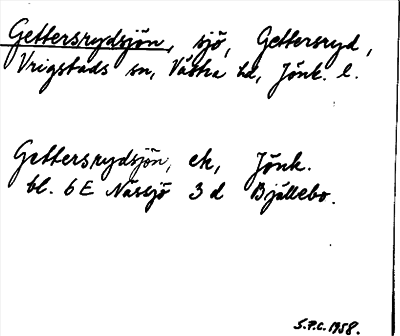 Gettersrydsjön, sjö, Gettersryd,
Vrigstads sn, Västra hd, Jönk. l.
Gettersrydsjön, ek, Jönk.
bl. 6E Nässjö 3d Bjällebo.
S.P.C. 1958.